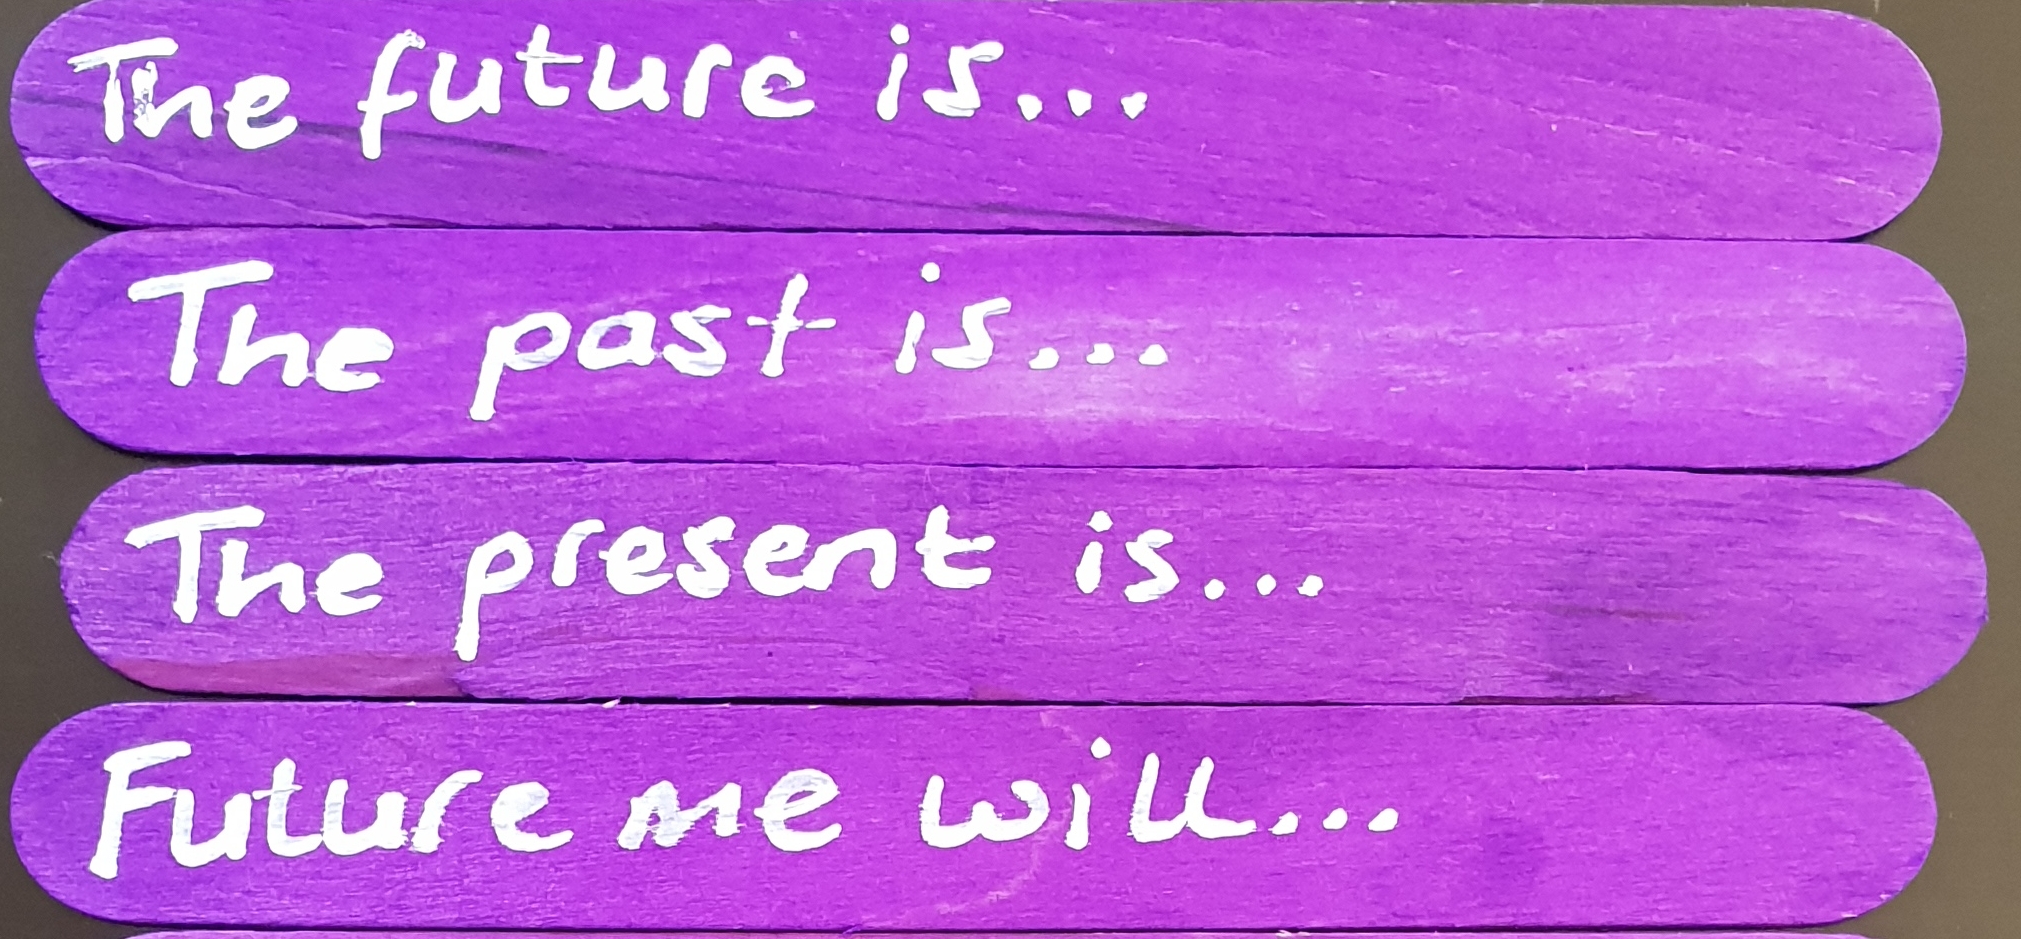 The future is...
The past is...
The present is...
Future me will...